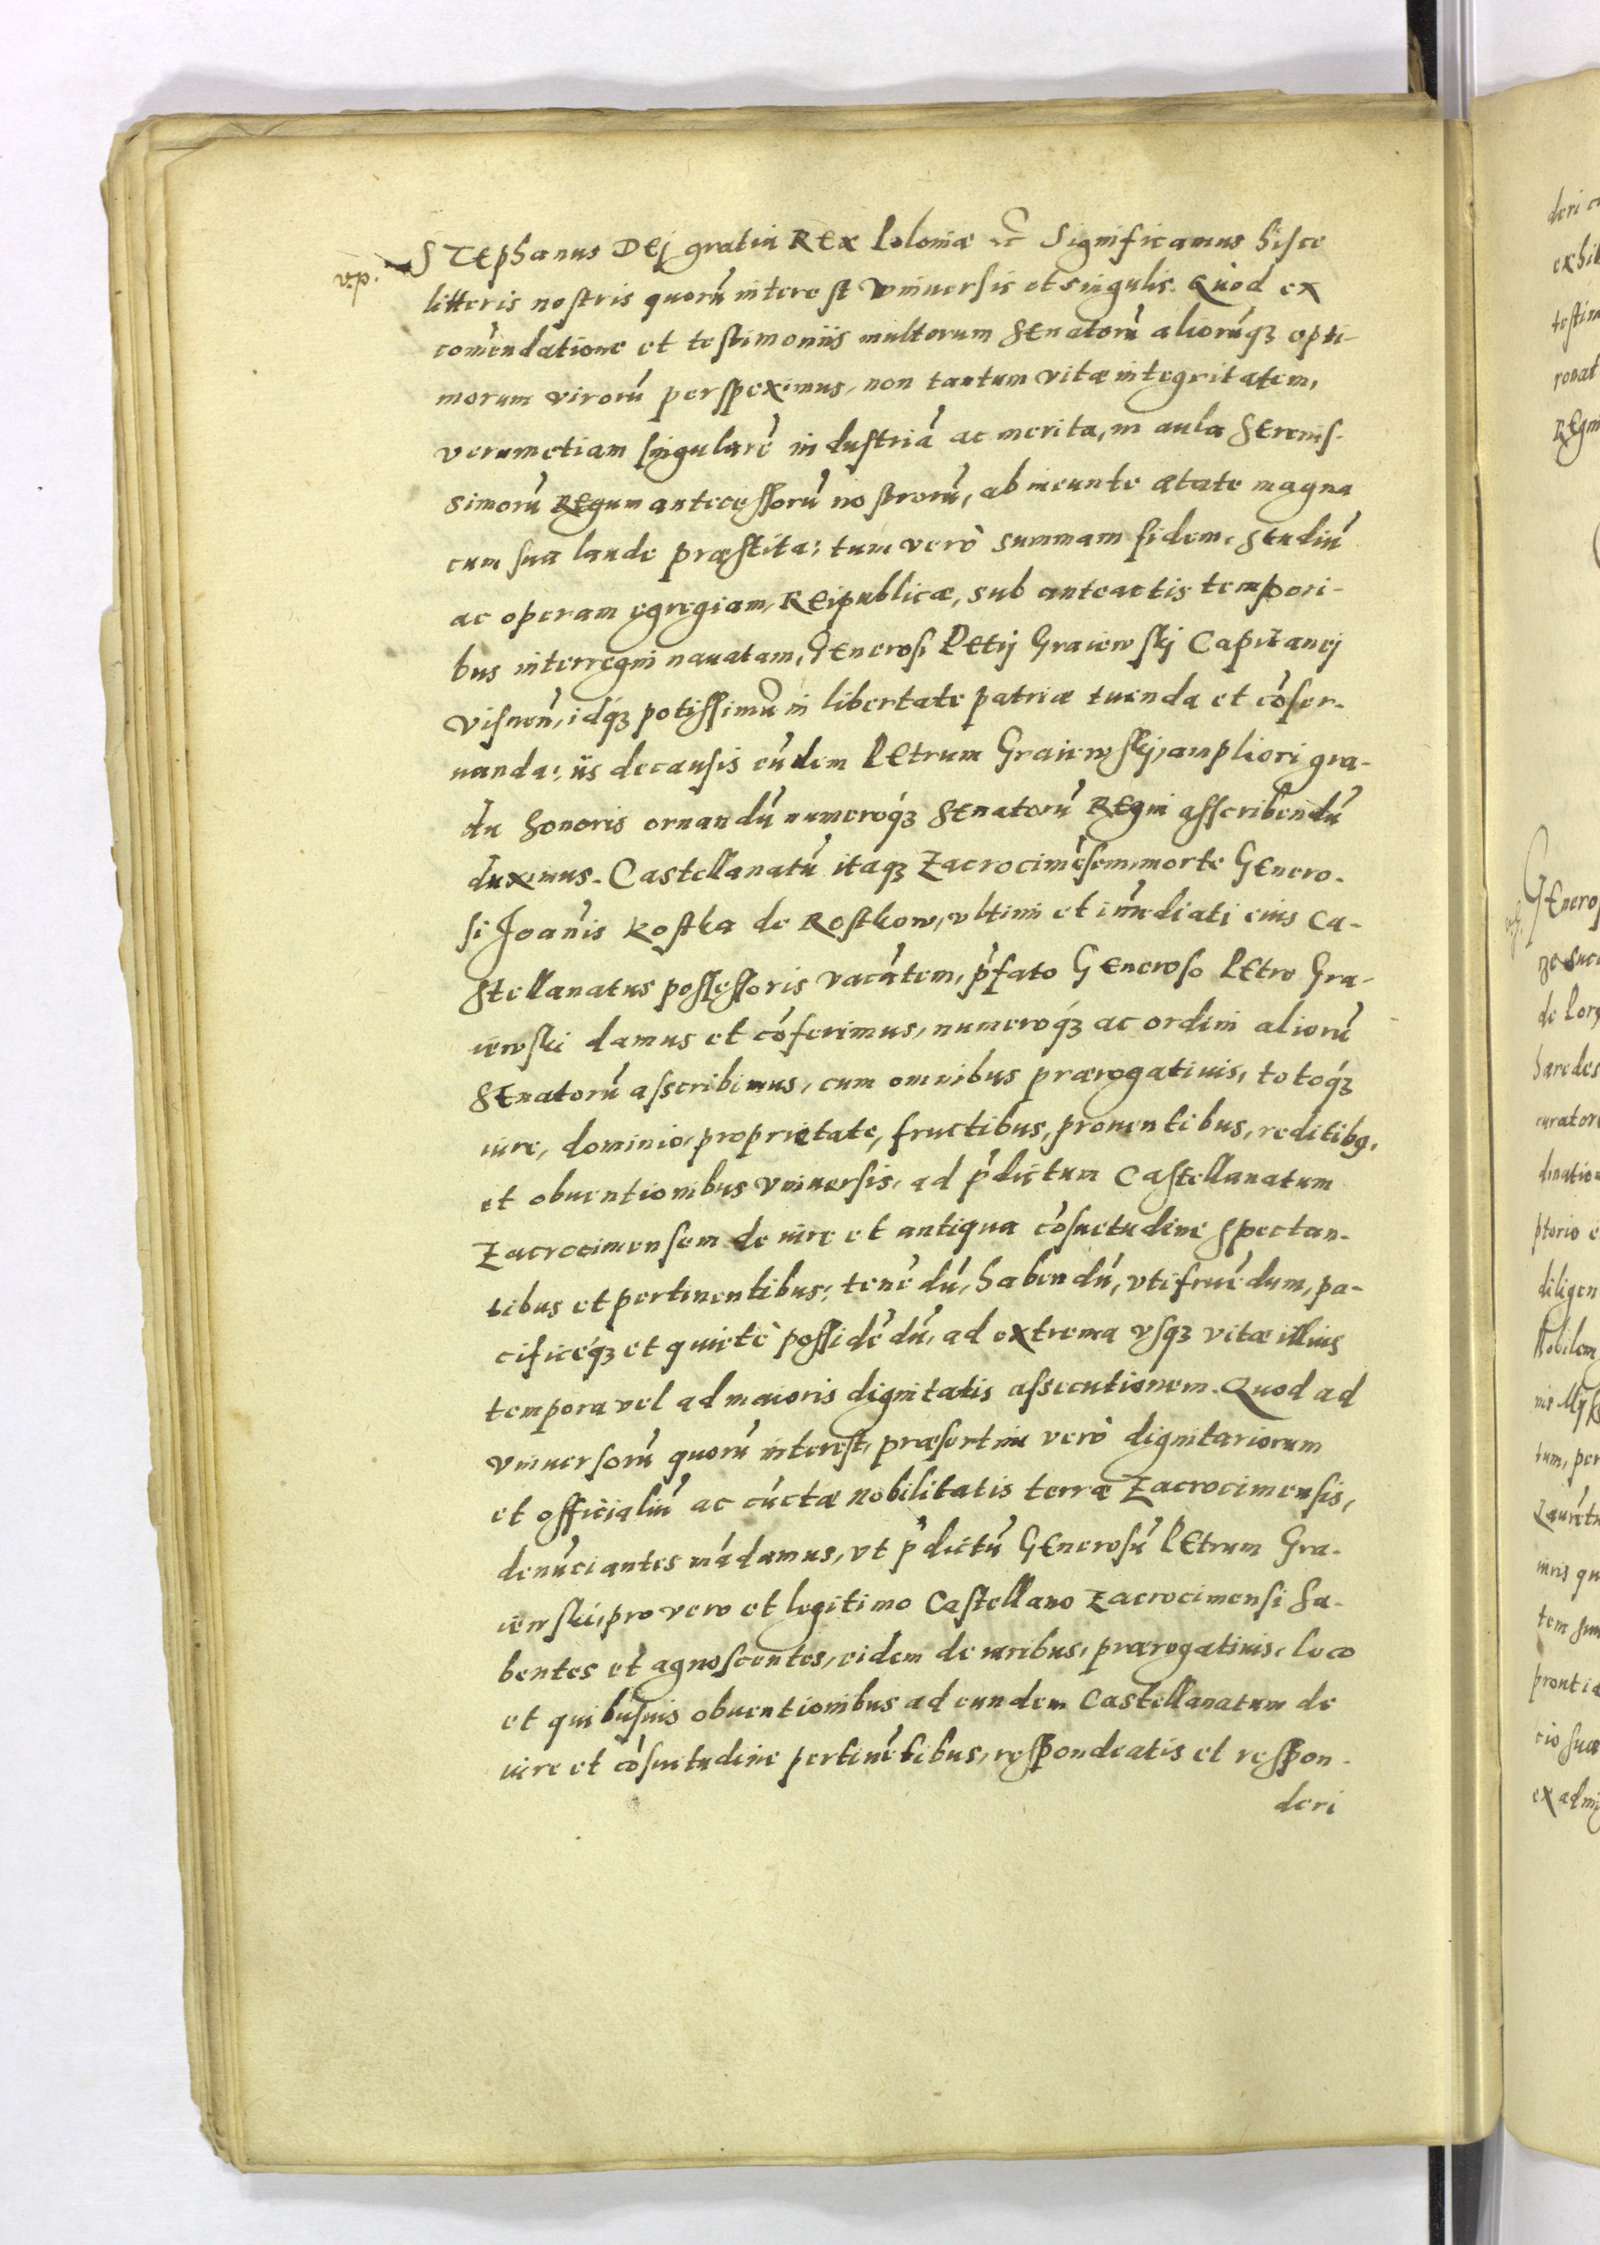 vp. STEphanus DEj gratia REx Poloniæ etc Significamus hisce
litteris nostris quorū interest vniuersis et singulis. Quod ex
comēndatione et testimoniis multorum SEnatorū aliorūq₃ opti-
morum virorū perspeximus, non tantum vitæ integritatem,
verumetiam singularē industriā ac merita, in aula SErenis-
simorū REgum antecessorū nostrorū, ab ineunte ætate magna
cum sua laude præstita; tum verò summam fidem, studiū
ac operam egregiam, REipublicæ, sub anteactis tempori-
bus interregni nauatam, GEnerosi PEtri Graiewskj Capitanej
Visnen̄, idq₃ potissimū in libertate patriæ tuenda et cōser-
uanda; iis de causis eūdem PEtrum Graiewskj, ampliori gra-
du honoris ornandū numeroq₃ SEnatorū REgni asscribendū
duximus. Castellanatū itaq₃ Zacrocimēsem, morte GEnero-
si Joannis Kostka de Rostkow, vltimi et immediati eius Ca-
stellanatus possessoris vacātem, p̄fato GEneroso PEtro Gra-
iewski damus et cōferimus, numeroq₃ ac ordini aliorū
SEnatorū asscribimus, cum omnibus prærogatiuis, totoq₃
iure, dominio, proprietate, fructibus, prouentibus, reditibq,
et obuentionibus vniuersis, ad p̄dictum Castellanatum
Zacrocimensem de iure et antiqua cōsuetudine spectan-
tibus et pertinentibus; tenēdū, habendū, vtifruēdum, pa-
cificéq₃ et quietè possidēdū, ad extrema vsq₃ vitæ illius
tempora vel ad maioris dignitatis assecutionem. Quod ad
vniuersorū quorū interest, præsertim verò dignitariorum
et officialiū ac cūctæ nobilitatis terræ Zacrocimensis,
denūciantes mādamus, vt p̄dictū GEnerosū PEtrum Gra-
iewski, pro vero et legitimo Castellano Zacrocimensi ha-
bentes et agnoscentes, eidem de iuribus, prærogatiuis, loco
et quibusuis obuentionibus ad eundem Castellanatum de
iure et cōsuetudine pertinētibus, respondeatis et respon-
deri